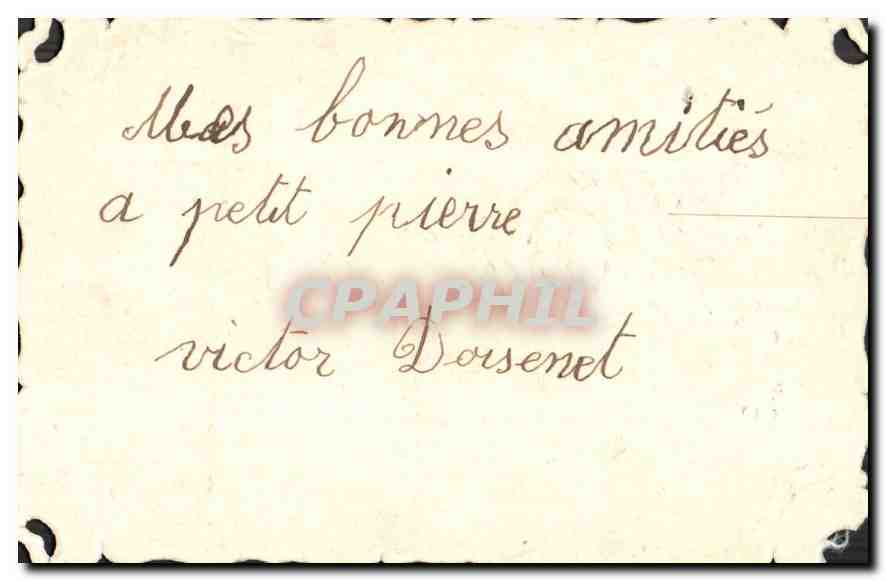 Mes bonnes amitiés
a petit pierre
CPAPHIL
victor Doisenet